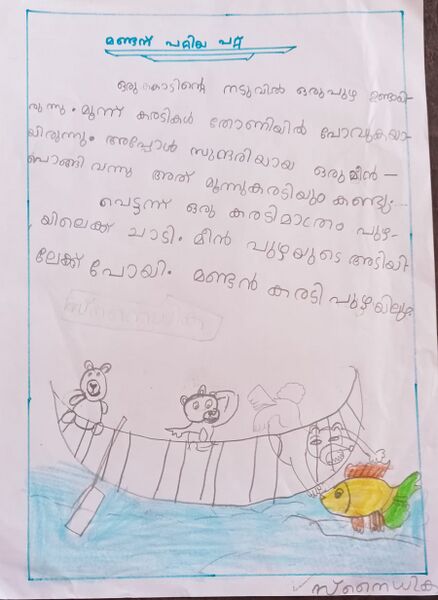 മണ്ടന് പറ്റിയ പറ്റ്
ഒരു കാടിന്റെ നടുവിൽ ഒരു പുഴ ഉണ്ടായി-
രുന്നു. മൂന്ന് കരടികൾ തോണിയിൽ പോവുകയാ-
യിരുന്നു. അപ്പോൾ സുന്ദരിയായ ഒരു മീൻ -
പൊങ്ങി വന്നു അത് മൂന്നുകരടിയും കണ്ടു...
പെട്ടന്ന് ഒരു കരടിമാത്രം പുഴ-
യിലെക്ക് ചാടി. മീൻ പുഴയുടെ അടിയി-
ലേക്ക് പോയി. മണ്ടൻ കരടി പുഴയിലും
സ്നൈധിക